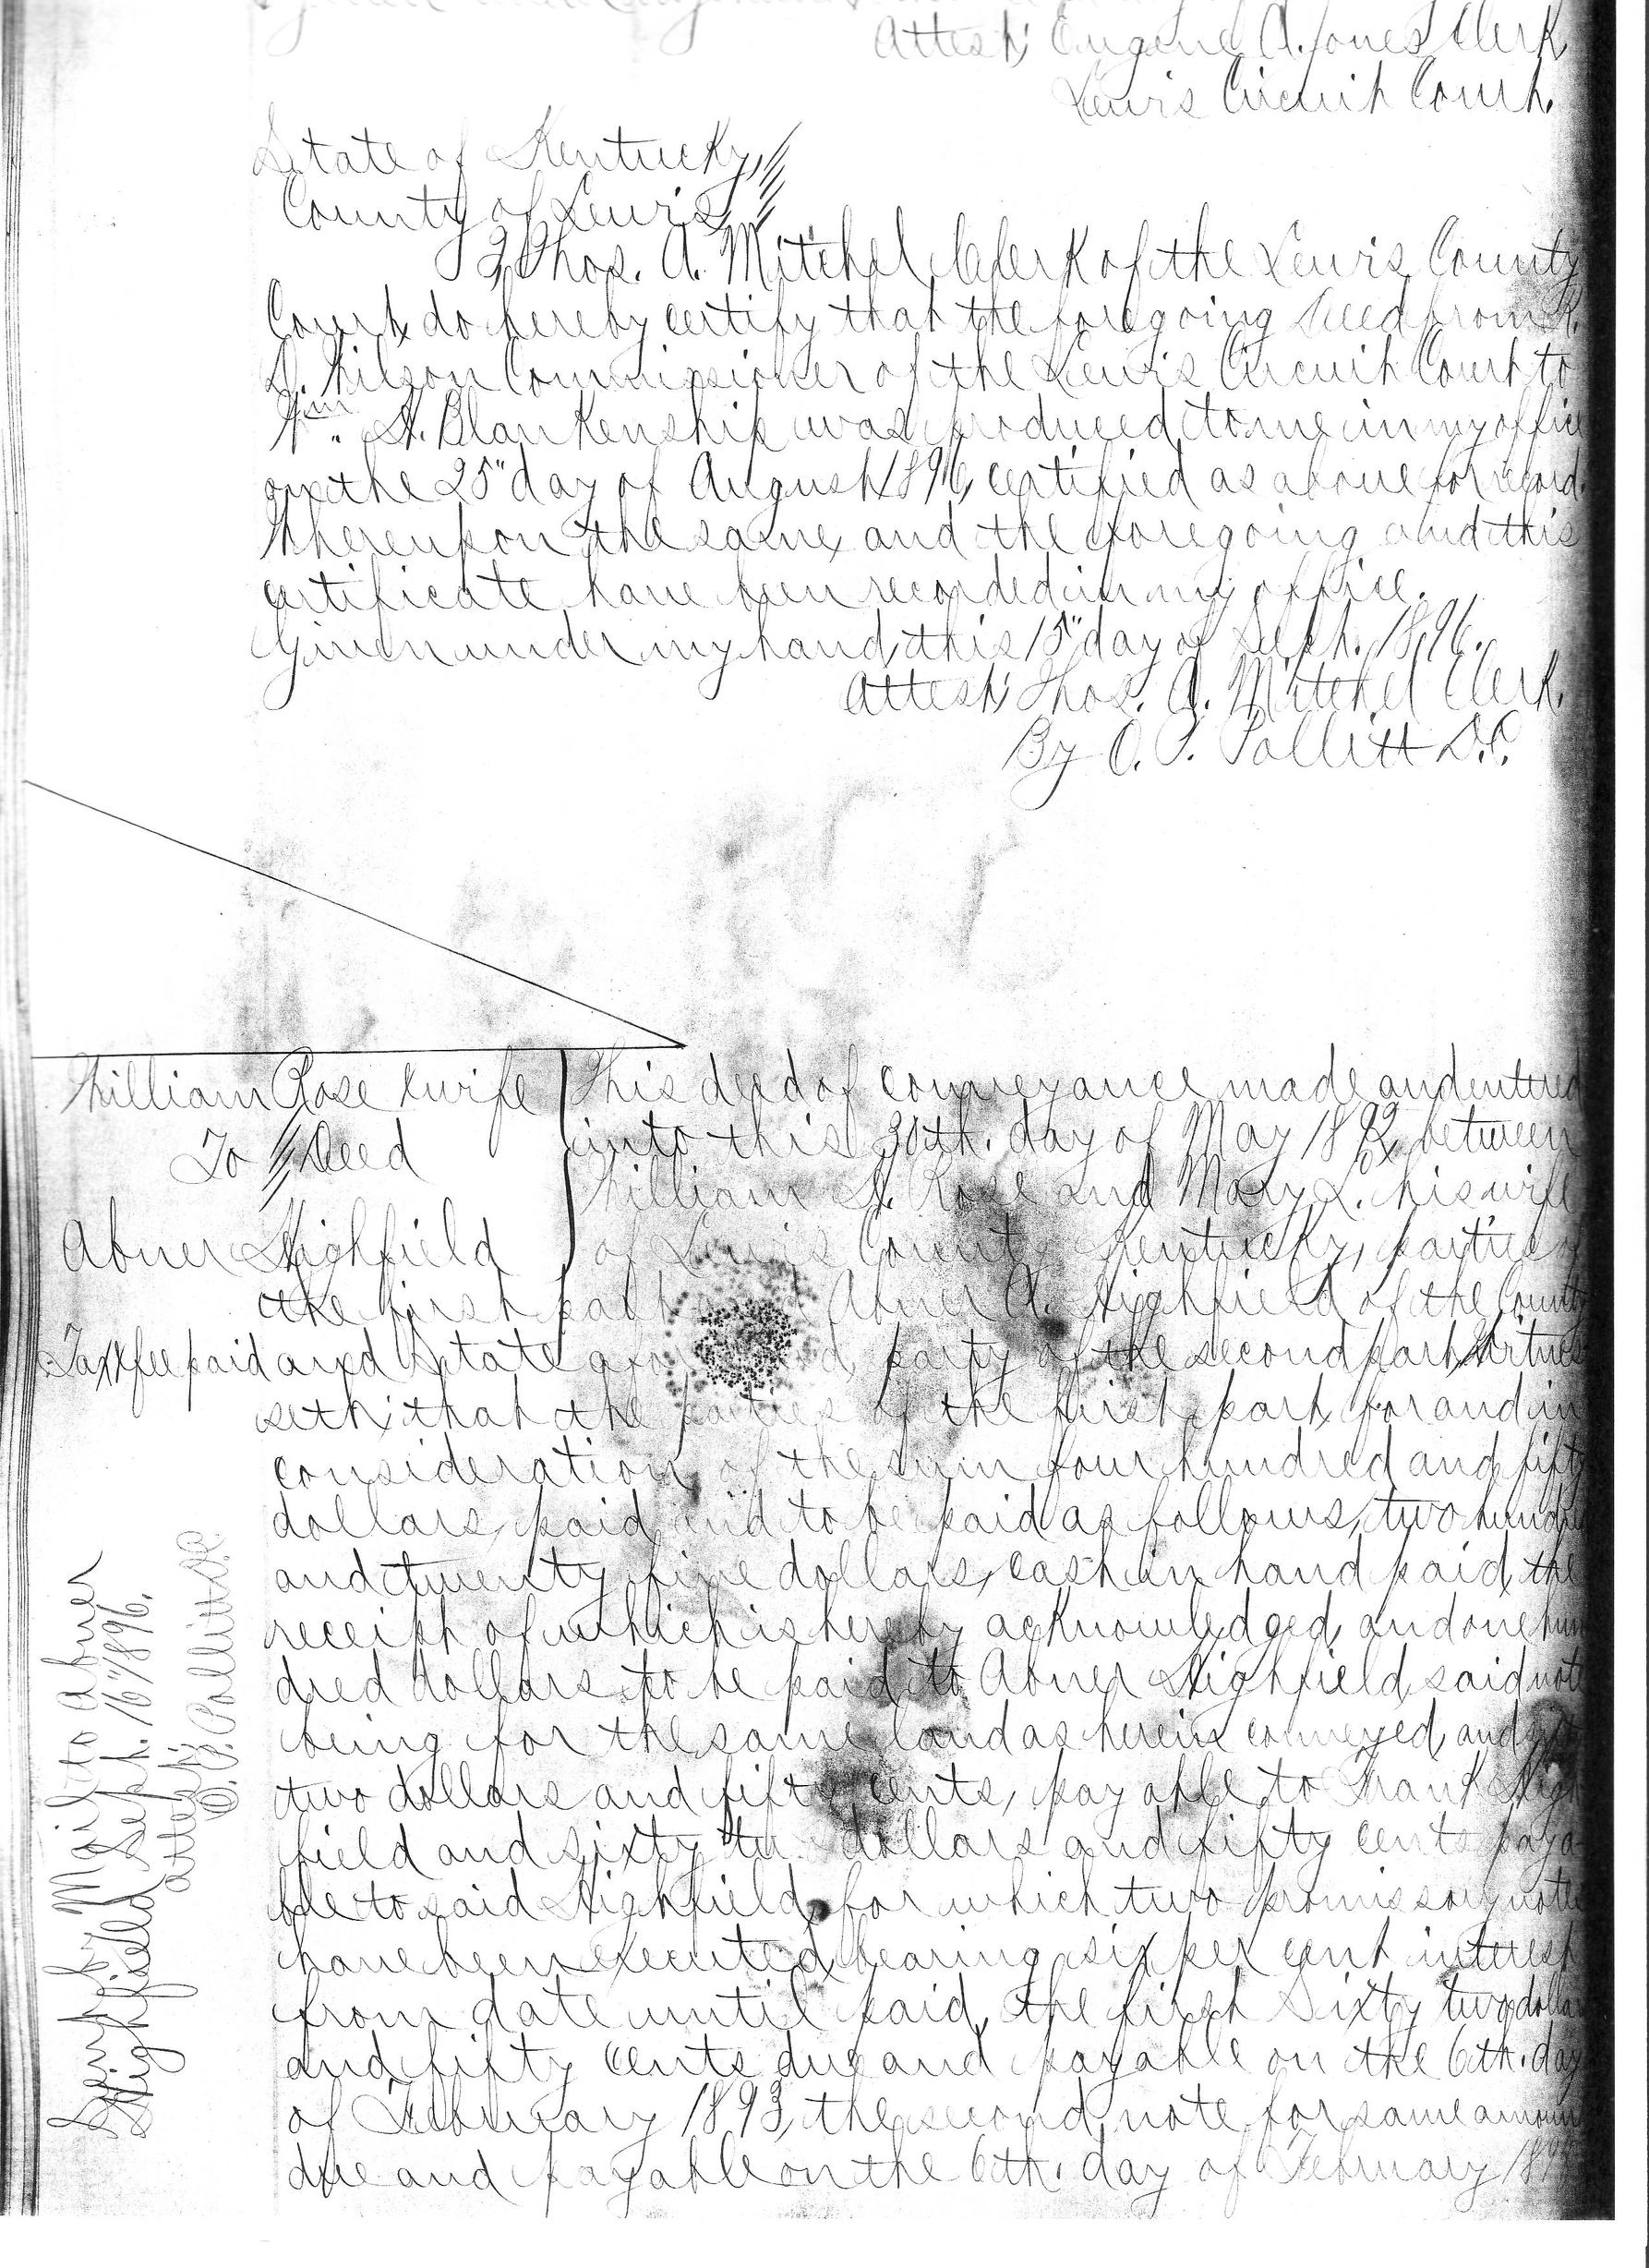 Attest; Eugene A. Jones Clerk
Lewis Circuit Court.
State of Kentucky,
County of Lewis
I, Thos. A. Mitchel Clerk of the Lewis County
Court, do hereby certify that the foregoing Deed from
Wilson Commissioner of the Lewis Circuit Court to
Wm. H. Blankenship was produced to me in my office
on the 25" day of August 1896, certified as above for record.
Whereupon the same, and the foregoing and this
certificate have been recorded in my office.
Given under my hand, this 15" day of Sept. 1896.
Attest; Thos. A. Mitchel Clerk.
By O. P. Pollitt D.C.
William Rose & wife
To Deed
Abner Highfield
Tax & fee paid
This deed of conveyance made and entered
into this 30th. day of May 1892, between
William H. Rose and Mary L. his wife
of Lewis County Kentucky, parties of
the first part Abner A. Highfield of the County
and State party of the second part, Witnes
seth; that the parties of the first part, for and in
consideration of the sum four hundred and fifty
dollars, paid and to be paid as follows, two hundred
and twenty five dollars, cash in hand paid, the
receipt of which is hereby acknowledged, and one hun
dred dollars to be paid to Abner Highfield, said note
being for the same land as herein conveyed, and
two dollars and fifty cents, payable to Frank High
field and sixty two dollars and fifty cents paya
ble to said Highfield, for which two promissory notes
have been executed, bearing six per cent interest
from date until paid, the first Sixty two dollars
and fifty cents due and payable on the 6th. day
of February 1893, the second note for same amount
due and payable on the 6th. day of February
Sent by Mail to Abner
Highfield Sept. 16" 1896.
Attest;
O. P. Pollitt D.C.